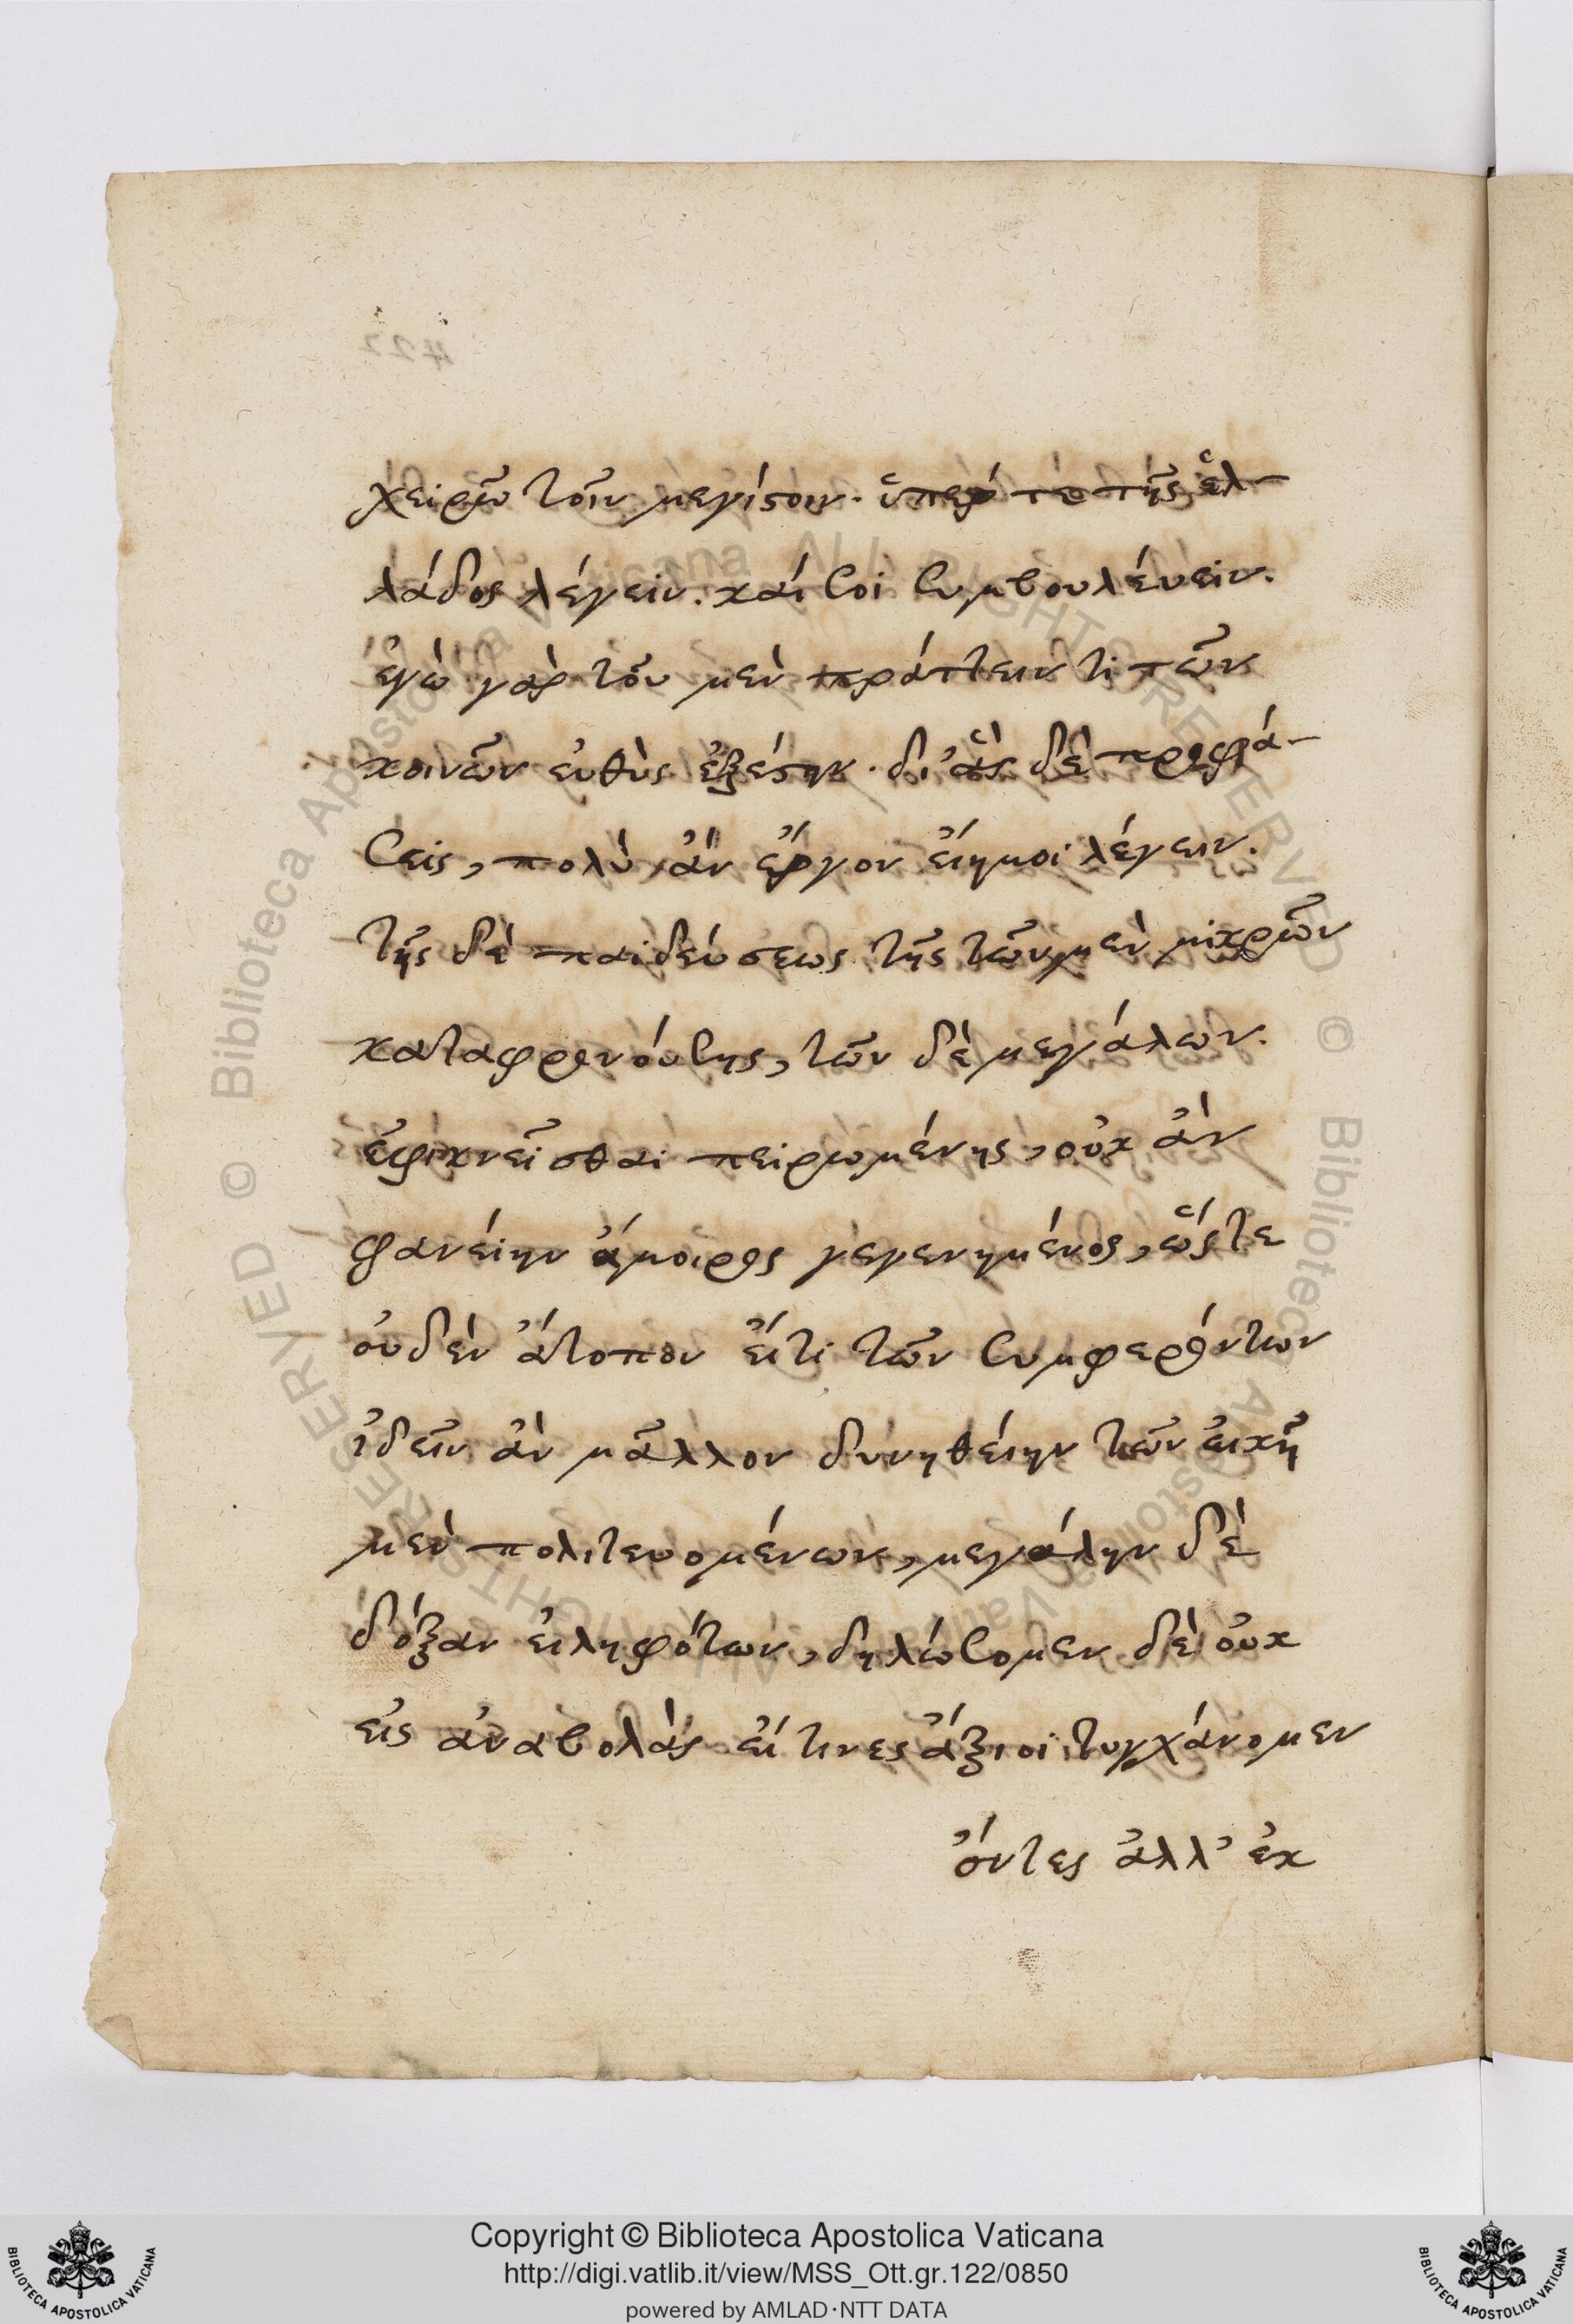 χειρῶ τοῖν μεγίστοιν. ὑπέρ τε τῆς ἑλ-
λάδος λέγειν. καί σοι συμβουλέυειν.
ἐγὼ γὰρ τοῦ μὲν πράττειν τι τῶν
κοινῶν εὐθὺς ἐξέστην. δι' ἃς δὲ προφά-
σεις, πολὺ ἂν ἔργον εἴη μοι λέγειν.
τῆς δὲ παιδεύσεως τῆς τῶν μὲν μικρῶν
καταφρονούσης, τῶν δὲ μεγάλων.
ἐφικνεῖσθαι πειρωμένης, οὐκ ἂν
φανείην ἄμοιρος γεγενημένος, ὥστε
οὐδὲν ἄτοπον εἴ τι τῶν συμφερόντων
ἰδεῖν ἂν μᾶλλον δυνηθείην τῶν εἰκῆ
μὲν πολιτευομένων, μεγάλην δὲ
δόξαν εἰληφότων, δηλώσομεν δὲ οὐκ
εἰς ἀναβολὰς εἴ τινες ἄξιοι τυγχάνομεν
ὄντες ἀλλ' ἐκ
422
© Biblioteca Apostolica Vaticana ALL RIGHTS RESERVED
© Biblioteca Apostolica Vaticana ALL RIGHTS RESERVED
Copyright © Biblioteca Apostolica Vaticana
http://digi.vatlib.it/view/MSS_Ott.gr.122/0850
powered by AMLAD·NTT DATA
BIBLIOTECA APOSTOLICA VATICANA
BIBLIOTECA APOSTOLICA VATICANA